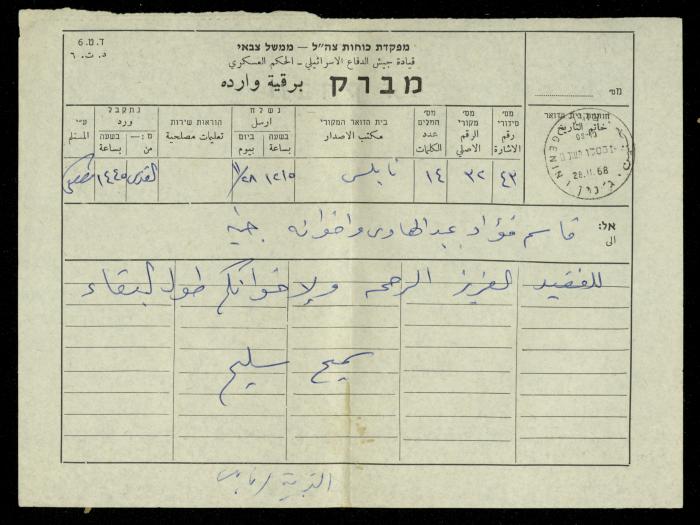 ד.מ.6
د.ت.٦
מפקדת כוחות צה"ל – ממשל צבאי
قيادة جيش الدفاع الاسرائيلي - الحكم العسكري
מברק برقية وارده
מס׳
חותמת בית הדואר
خاتم التاريخ
JENIN
28.11.68
מס׳ סידורי
رقم الاشارة
מס׳ מקורי
الرقم الاصلي
מס׳ המלים
عدد الكلمات
בית הדואר המקורי
مكتب الاصدار
נשלח
ارسل
בשעה
بساعة
ביום
بيوم
הוראות שירות
تعليمات مصلحية
נתקבל
ورد
בשעה
بساعة
מ:—
من
ע״י
المستلم
٤٣ ٣٢ ١٤ نابلس ١٢١٥ ١١/٢٨ القدس ١٤٤٥
אל:
الى
قاسم فؤاد عبد الهادي واخوانه جنين
للفقيد العزيز الرحمه ولاخوانكم طول البقاء
سميح سليم